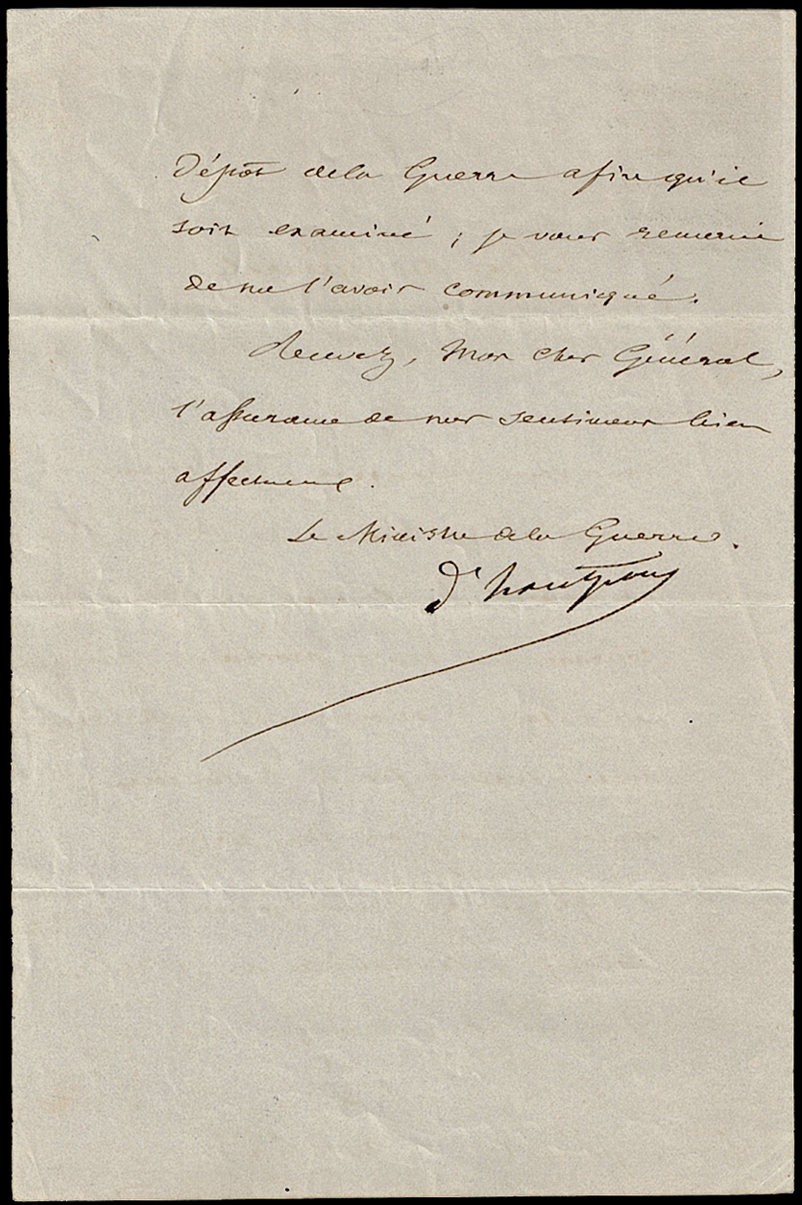 Dépôt de la Guerre afin qu'il
soit examiné ; je vous remercie
de me l'avoir communiqué.
Recevez, Mon cher Général,
l'assurance de mes sentimens bien
affectueux.
Le Ministre de la Guerre.
d'hautpoul